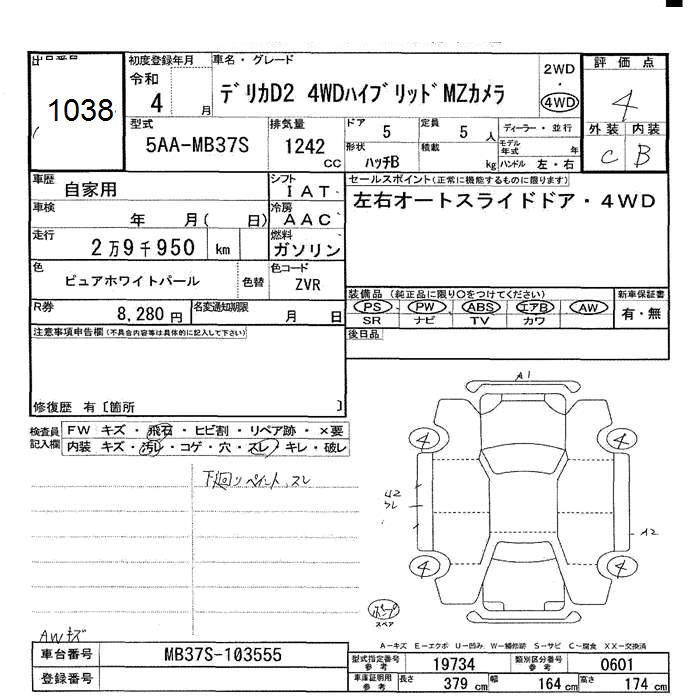 出品番号
1038
初度登録年月
令和
4 月
車名・グレード
デリカD2 4WDハイブリッドMZカメラ
2WD
・
4WD
評価点
4
外装 内装
C B
型式
5AA-MB37S
排気量
1242 cc
ドア 5
定員 5 人
形状 ハッチB
積載 kg
ディーラー・並行
モデル年式 年
ハンドル 左・右
車歴 自家用
シフト IAT
車検 年 月( 日)
冷房 AAC
走行 2万9千950 km
燃料 ガソリン
色 ピュアホワイトパール
色替
色コード ZVR
R券 8,280円
名変通知期限 月 日
セールスポイント(正常に機能するものに限ります)
左右オートスライドドア・4WD
装備品(純正品に限り○をつけてください)
新車保証書
PS PW ABS エアB AW
SR ナビ TV カワ
有・無
後日品
注意事項申告欄(不具合内容等は具体的に記入して下さい)
修復歴 有〔箇所 〕
検査員記入欄
FW キズ・飛石・ヒビ割・リペア跡・×要
内装 キズ・汚レ・コゲ・穴・スレ・キレ・破レ
下回りペイント、スレ
A1
4
4
U2
4
4
A2
スペア
AWキズ
A-キズ E-エクボ U-凹み W-補修跡 S-サビ C-腐食 XX-交換済
車台番号 MB37S-103555
登録番号
型式指定番号 参考 19734
類別区分番号 参考 0601
車庫証明用 参考 長さ 379 cm 幅 164 cm 高さ 174 cm